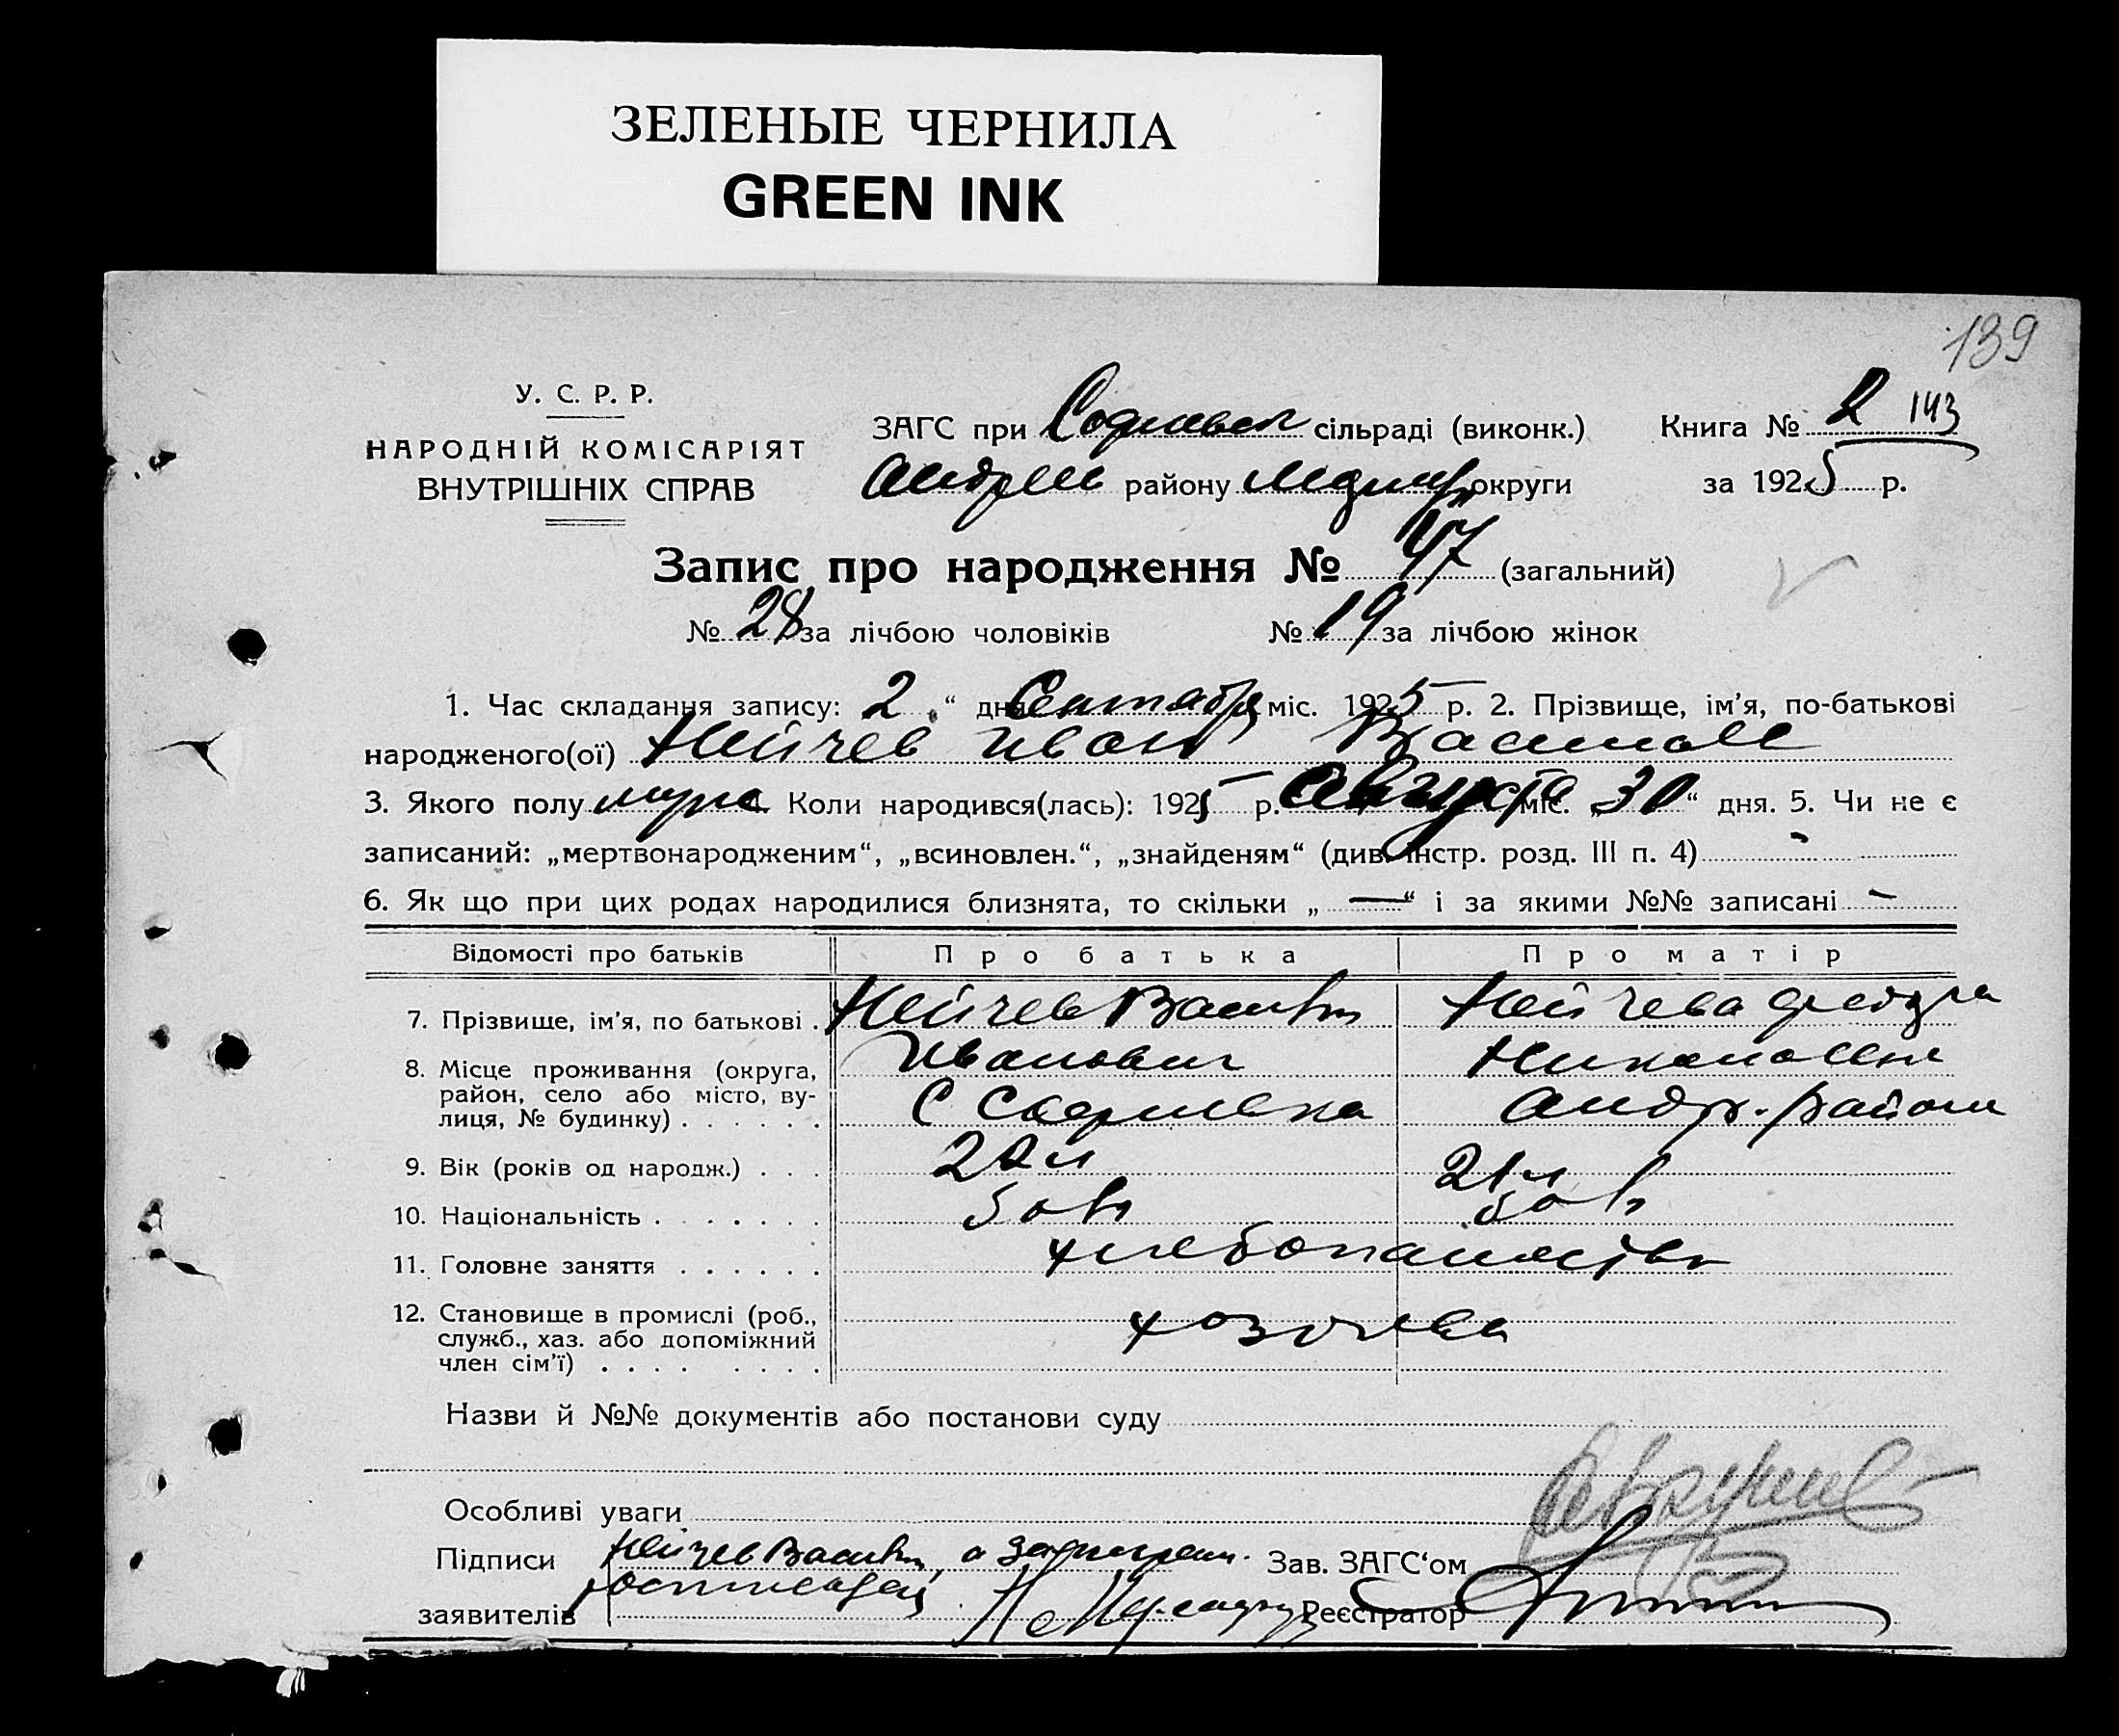 ЗЕЛЕНЫЕ ЧЕРНИЛА
GREEN INK
139
У. С. Р. Р.
НАРОДНІЙ КОМІСАРІЯТ
ВНУТРІШНІХ СПРАВ
ЗАГС при Софиевск сільраді (виконк.)
Книга № 2 143
Андреев району округи
за 1925 р.
Запис про народження № 47 (загальний)
№ 28 за лічбою чоловіків № 19 за лічбою жінок
1. Час складання запису: 2 “ дня Сентября міс. 1925 р. 2. Прізвище, ім’я, по-батькові
народженого(ої) Нейчев Иван
3. Якого полу 4. Коли народився(лась): 1925 р. Августа міс. „30“ дня. 5. Чи не є
записаний: „мертвонародженим“, „всиновлен.“, „знайденям“ (див. інстр. розд. III п. 4) -
6. Як що при цих родах народилися близнята, то скільки „ — “ і за якими №№ записані -
Відомості про батьків Про батька Про матір
7. Прізвище, ім’я, по батькові . Нейчев Васил Нейчева
Иванович
8. Місце проживання (округа, район, село або місто, вулиця, № будинку) . . . . . . С Софиевка Андр. район
9. Вік (років од народж.) . . . 21л
10. Національність . . . . . . . болг болг
11. Головне заняття . . . . . . хлебопашество
12. Становище в промислі (роб., служб., хаз. або допоміжний член сім’ї) . . . . . . . . хозяева
Назви й №№ документів або постанови суду
Особливі уваги
Підписи Нейчев Васил, а
заявителів
Зав. ЗАГС‘ом
Реєстратор